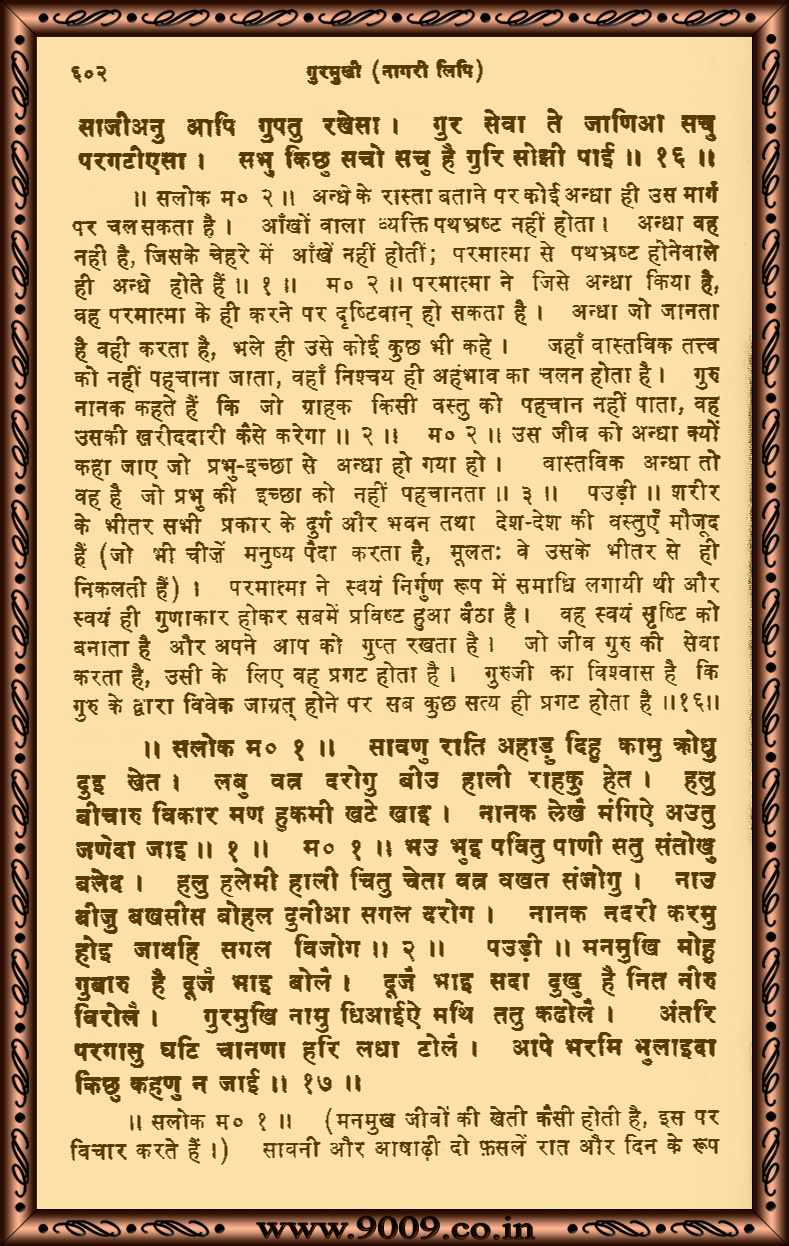 ६०२ गुरमुखी (नागरी लिपि)
साजीअनु आपि गुपतु रखेसा । गुर सेवा ते जाणिआ सचु
परगटीएसा । सभु किछु सचो सचु है गुरि सोझी पाई ॥ १६ ॥
॥ सलोक म० २ ॥ अन्धे के रास्ता बताने पर कोई अन्धा ही उस मार्ग
पर चल सकता है । आँखों वाला व्यक्ति पथभ्रष्ट नहीं होता । अन्धा वह
नही है, जिसके चेहरे में आँखें नहीं होतीं; परमात्मा से पथभ्रष्ट होनेवाले
ही अन्धे होते हैं ॥ १ ॥ म० २ ॥ परमात्मा ने जिसे अन्धा किया है,
वह परमात्मा के ही करने पर दृष्टिवान् हो सकता है । अन्धा जो जानता
है वही करता है, भले ही उसे कोई कुछ भी कहे । जहाँ वास्तविक तत्त्व
को नहीं पहचाना जाता, वहाँ निश्चय ही अहंभाव का चलन होता है । गुरु
नानक कहते हैं कि जो ग्राहक किसी वस्तु को पहचान नहीं पाता, वह
उसकी ख़रीददारी कैसे करेगा ॥ २ ॥ म० २ ॥ उस जीव को अन्धा क्यों
कहा जाए जो प्रभु-इच्छा से अन्धा हो गया हो । वास्तविक अन्धा तो
वह है जो प्रभु की इच्छा को नहीं पहचानता ॥ ३ ॥ पउड़ी ॥ शरीर
के भीतर सभी प्रकार के दुर्ग और भवन तथा देश-देश की वस्तुएँ मौजूद
हैं (जो भी चीज़ें मनुष्य पैदा करता है, मूलतः वे उसके भीतर से ही
निकलती हैं) । परमात्मा ने स्वयं निर्गुण रूप में समाधि लगायी थी और
स्वयं ही गुणाकार होकर सबमें प्रविष्ट हुआ बैठा है । वह स्वयं सृष्टि को
बनाता है और अपने आप को गुप्त रखता है । जो जीव गुरु की सेवा
करता है, उसी के लिए वह प्रगट होता है । गुरुजी का विश्वास है कि
गुरु के द्वारा विवेक जाग्रत् होने पर सब कुछ सत्य ही प्रगट होता है ॥१६॥
॥ सलोक म० १ ॥ सावणु राति अहाड़ु दिहु कामु क्रोधु
दुइ खेत । लबु वत्र दरोगु बीउ हाली राहकु हेत । हलु
बीचारु विकार मण हुकमी खटे खाइ । नानक लेखै मंगिऐ अउतु
जणेदा जाइ ॥ १ ॥ म० १ ॥ भउ भुइ पवितु पाणी सतु संतोखु
बलेद । हलु हलेमी हाली चितु चेता वत्र वखत संजोगु । नाउ
बीजु बखसीस बोहल दुनीआ सगल दरोग । नानक नदरी करमु
होइ जावहि सगल विजोग ॥ २ ॥ पउड़ी ॥ मनमुखि मोहु
गुबारु है दूजै भाइ बोलै । दूजै भाइ सदा दुखु है नित नीरु
विरोलै । गुरमुखि नामु धिआईऐ मथि ततु कढोलै । अंतरि
परगासु घटि चानणा हरि लधा टोलै । आपे भरमि भुलाइदा
किछु कहणु न जाई ॥ १७ ॥
॥ सलोक म० १ ॥ (मनमुख जीवों की खेती कैसी होती है, इस पर
विचार करते हैं ।) सावनी और आषाढ़ी दो फ़सलें रात और दिन के रूप
www.9009.co.in